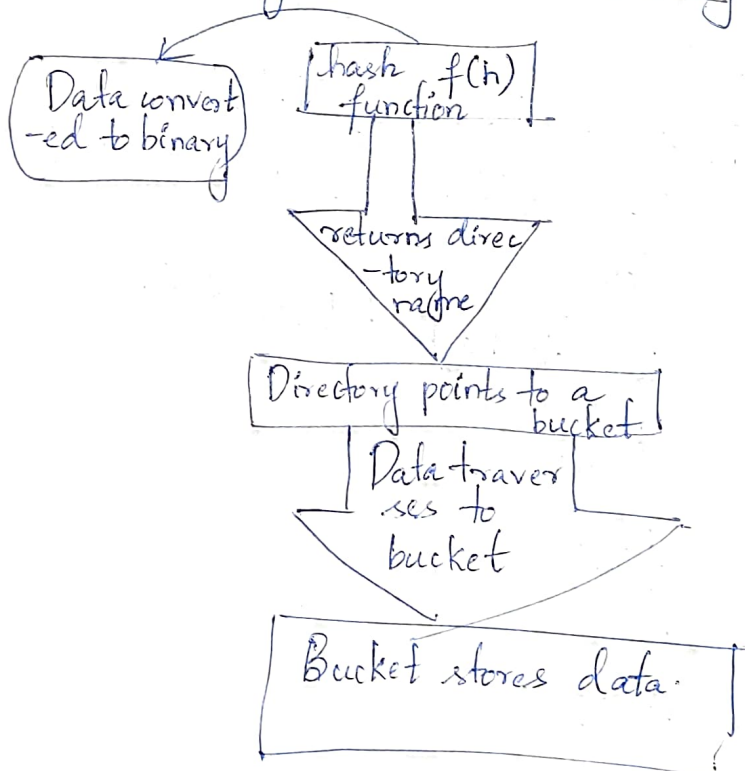 Data convert
-ed to binary
hash f(h)
function
returns direc
-tory
name
Directory points to a
bucket
Data traver
ses to
bucket
Bucket stores data.